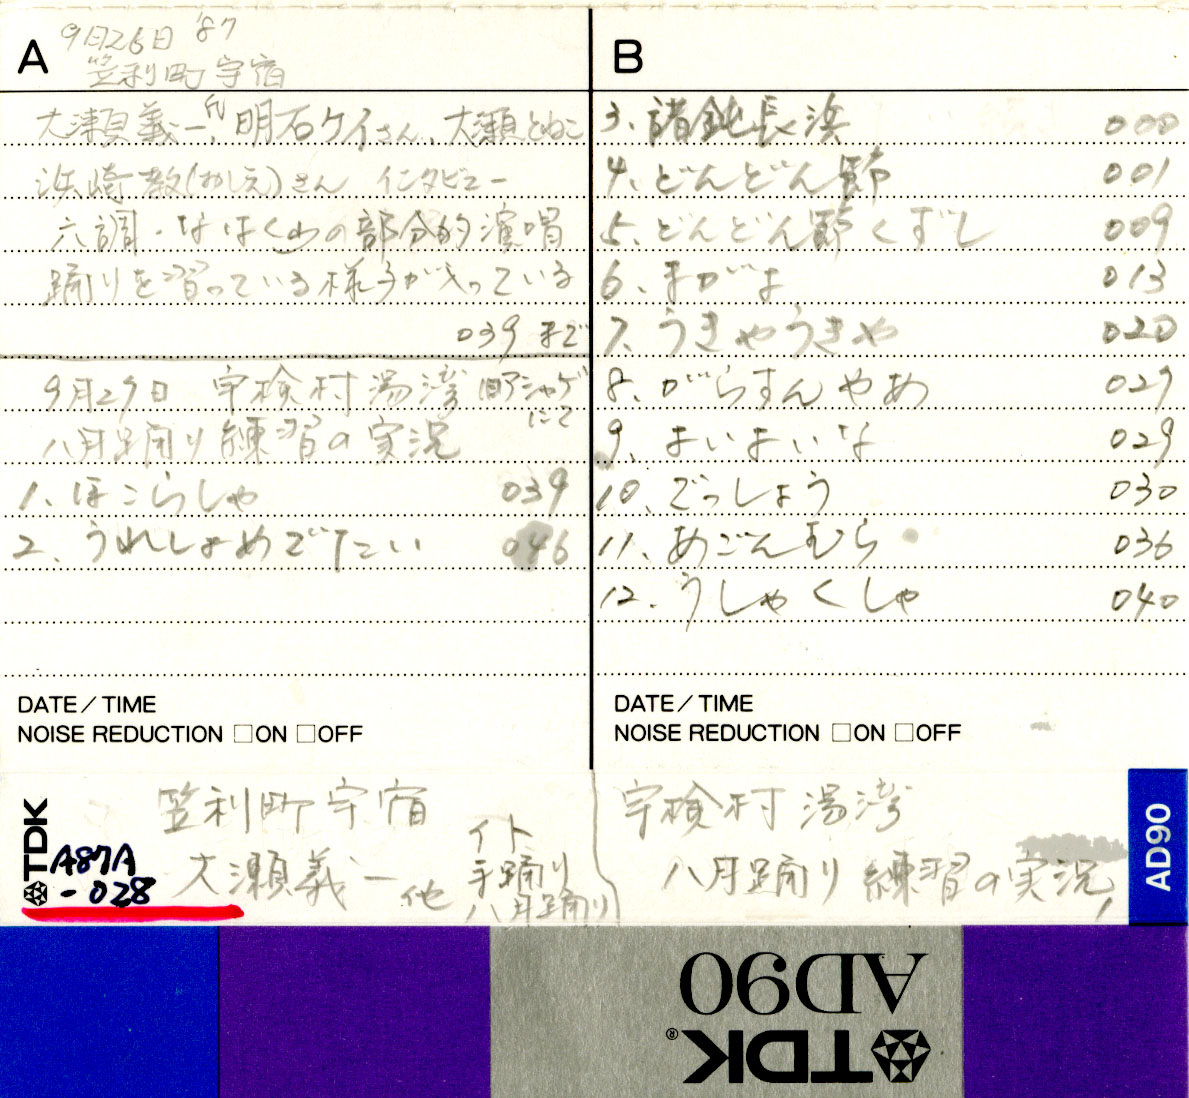 A
9月26日 '87
笠利町宇宿
大瀬義一氏、明石ケイさん、大瀬とねこ
浜崎教(おしえ)さん インタビュー
六調・なはくの部分的演唱
踊りを習っている様子が入っている
039 まで
9月27日 宇検村湯湾 旧アシャゲにて
八月踊り練習の実況
1、ほこらしゃ 039
2、うれしょめでたい 046
DATE/TIME
NOISE REDUCTION □ON □OFF
B
3、諸鈍長浜 000
4、どんどん節 001
5、どんどん節くずし 009
6、まがま 013
7、うきやうきや 020
8、がらすんやめ 027
9、まいまいな 029
10、でっしょう 030
11、あごんむら 036
12、うしゃくしゃ 040
DATE/TIME
NOISE REDUCTION □ON □OFF
TDK
A87A
-028
笠利町宇宿
大瀬義一 他
イト
手踊り
八月踊り
宇検村湯湾
八月踊り練習の実況
AD90
AD90
TDK®